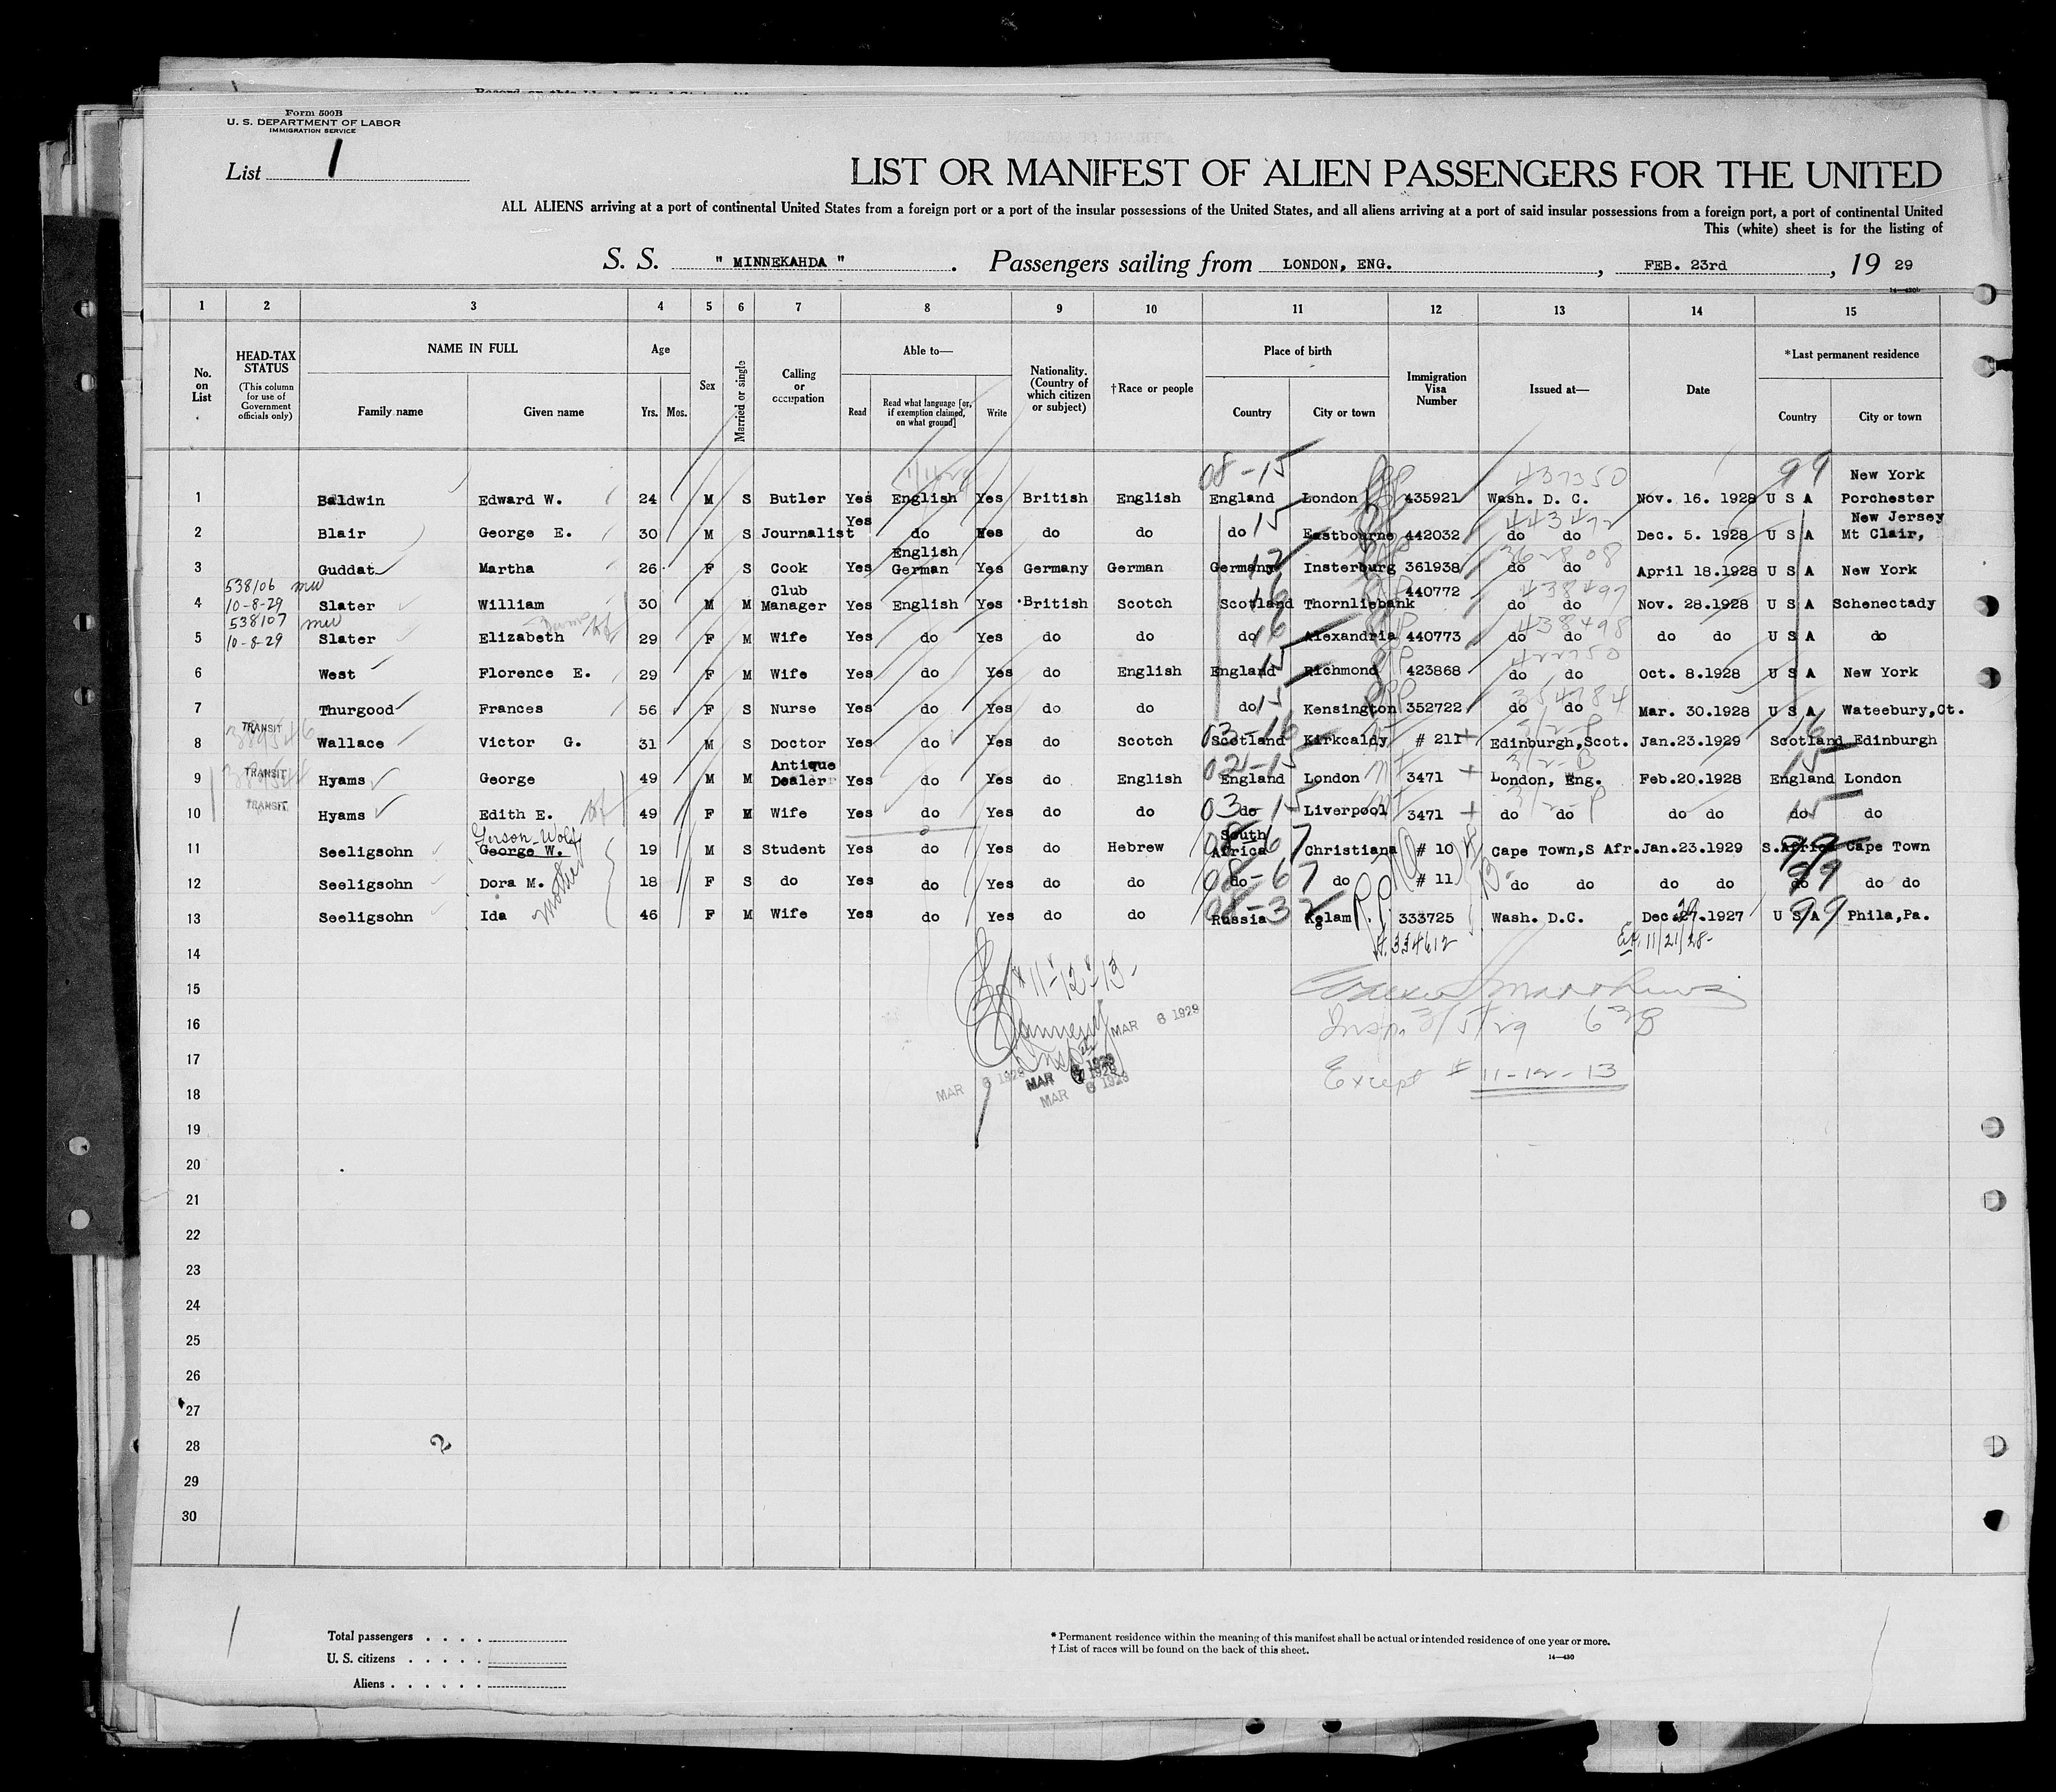 Form 500B
U. S. DEPARTMENT OF LABOR
IMMIGRATION SERVICE
List 1
LIST OR MANIFEST OF ALIEN PASSENGERS FOR THE UNITED
ALL ALIENS arriving at a port of continental United States from a foreign port or a port of the insular possessions of the United States, and all aliens arriving at a port of said insular possessions from a foreign port, a port of continental United
This (white) sheet is for the listing of
S. S. " MINNEKAHDA " . Passengers sailing from LONDON, ENG. , FEB. 23rd , 19 29
1 2 3 4 5 6 7 8 9 10 11 12 13 14 15
No. on List
HEAD-TAX STATUS (This column for use of Government officials only)
NAME IN FULL Family name Given name
Age Yrs. Mos.
Sex
Married or single
Calling or occupation
Able to— Read Read what language [or, if exemption claimed, on what ground] Write
Nationality. (Country of which citizen or subject)
†Race or people
Place of birth Country City or town
Immigration Visa Number
Issued at—
Date
*Last permanent residence Country City or town
08-15 437350 99 New York
1 Baldwin Edward W. 24 M S Butler Yes English Yes British English England London 435921 Wash. D. C. Nov. 16. 1928 U S A Porchester
Yes 15 443472 New Jersey
2 Blair George E. 30 M S Journalist do Yes do do do Eastbourne 442032 do do Dec. 5. 1928 U S A Mt Clair,
English 362808
3 Guddat Martha 26 F S Cook Yes German Yes Germany German Germany Insterburg 361938 do do April 18.1928 U S A New York
538106 mw Club 16 440772 438497
4 10-8-29 Slater William 30 M M Manager Yes English Yes British Scotch Scotland Thornliebank do do Nov. 28.1928 U S A Schenectady
538107 mw 16 438498
5 10-8-29 Slater Elizabeth 29 F M Wife Yes do Yes do do do Alexandria 440773 do do do do U S A do
15 422750
6 West Florence E. 29 F M Wife Yes do Yes do English England Richmond 423868 do do Oct. 8.1928 U S A New York
15 354784
7 Thurgood Frances 56 F S Nurse Yes do Yes do do do Kensington 352722 do do Mar. 30.1928 U S A Wateebury,Ct.
TRANSIT 03-16 16
8 Wallace Victor G. 31 M S Doctor Yes do Yes do Scotch Scotland Kirkcaldy # 211 Edinburgh,Scot. Jan.23.1929 Scotland Edinburgh
TRANSIT Antique 02-15 15
9 Hyams George 49 M M Dealer Yes do Yes do English England London 3471 London, Eng. Feb.20.1928 England London
TRANSIT 03-15 15
10 Hyams Edith E. 49 F M Wife Yes do Yes do do do Liverpool 3471 do do do do do do
Gerson-Wolf South 08-67 99
11 Seeligsohn George W. 19 M S Student Yes do Yes do Hebrew Africa Christiana # 10 Cape Town,S Afr. Jan.23.1929 S.Africa Cape Town
Mother 08-67 99
12 Seeligsohn Dora M. 18 F S do Yes do Yes do do do do # 11 do do do do do do do
99
13 Seeligsohn Ida 46 F M Wife Yes do Yes do do Russia Kelam 333725 Wash. D.C. Dec.27.1927 U S A Phila,Pa.
334612 11/21/28-
14
# 11-12-13-
15
MAR 6 1929
16
Insp. 3/5/29
17
MAR 6 1929
Except # 11-12-13
18
MAR 6 1929
19
20
21
22
23
24
25
26
27
28 2
29
30
1
Total passengers
U. S. citizens
Aliens
* Permanent residence within the meaning of this manifest shall be actual or intended residence of one year or more.
† List of races will be found on the back of this sheet.
14—430